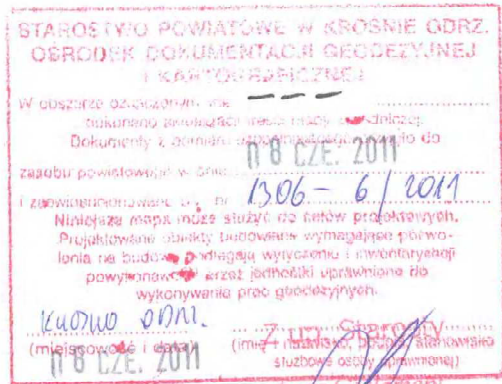 STAROSTWO POWIATOWE W KROŚNIE ODRZ.
OŚRODEK DOKUMENTACJI GEODEZYJNEJ
I KARTOGRAFICZNEJ
W obszarze oznaczonym
dokonano aktualizacji treści mapy
Dokumenty z pomiaru do
0 8 CZE. 2011
zasobu powiatowego w dniu
i zaewidencjonowano nr 1306 - 6/2011
Niniejsza mapa może służyć do celów projektowych.
Projektowane obiekty budowlane wymagające pozwo-
lenia na budowę podlegają wytyczeniu i inwentaryzacji
powykonawczej przez jednostki uprawnione do
wykonywania prac geodezyjnych.
Z up. Starosty
(miejscowość i data) (imię i nazwisko, podpis, stanowisko
0 8 CZE. 2011 służbowe osoby uprawnionej)